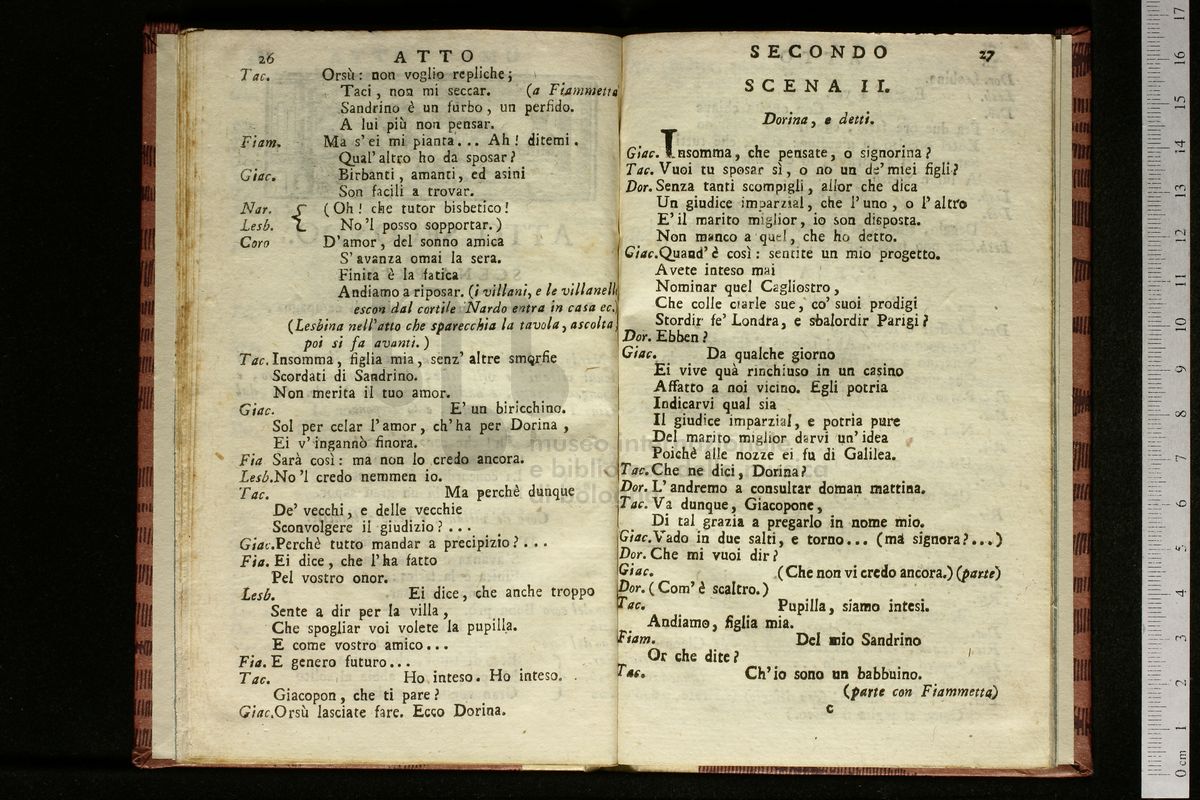 26 ATTO
Tac. Orsù: non voglio repliche;
Taci, non mi seccar. (a Fiammetta
Sandrino è un furbo, un perfido.
A lui più non pensar.
Fiam. Ma s'ei mi pianta... Ah! ditemi.
Qual'altro ho da sposar?
Giac. Birbanti, amanti, ed asini
Son facili a trovar.
Nar. { (Oh! che tutor bisbetico!
Lesb. No'l posso sopportar.)
Coro D'amor, del sonno amica
S'avanza omai la sera.
Finita è la fatica
Andiamo a riposar. (i villani, e le villanelle
escon dal cortile Nardo entra in casa ec.
(Lesbina nell'atto che sparecchia la tavola, ascolta,
poi si fa avanti.)
Tac. Insomma, figlia mia, senz' altre smorfie
Scordati di Sandrino.
Non merita il tuo amor.
Giac. E' un biricchino.
Sol per celar l'amor, ch'ha per Dorina,
Ei v'ingannò finora.
Fia Sarà così: ma non lo credo ancora.
Lesb. No'l credo nemmen io.
Tac. Ma perchè dunque
De' vecchi, e delle vecchie
Sconvolgere il giudizio?...
Giac. Perchè tutto mandar a precipizio?...
Fia. Ei dice, che l'ha fatto
Pel vostro onor.
Lesb. Ei dice, che anche troppo
Sente a dir per la villa,
Che spogliar voi volete la pupilla.
E come vostro amico...
Fia. E genero futuro...
Tac. Ho inteso. Ho inteso.
Giacopon, che ti pare?
Giac. Orsù lasciate fare. Ecco Dorina.
SECONDO 27
SCENA II.
Dorina, e detti.
Giac. Insomma, che pensate, o signorina?
Tac. Vuoi tu sposar sì, o no un de' miei figli?
Dor. Senza tanti scompigli, allor che dica
Un giudice imparzial, che l'uno, o l'altro
E' il marito miglior, io son disposta.
Non manco a quel, che ho detto.
Giac. Quand'è così: sentite un mio progetto.
Avete inteso mai
Nominar quel Cagliostro,
Che colle ciarle sue, co' suoi prodigi
Stordir fe' Londra, e sbalordir Parigi?
Dor. Ebben?
Giac. Da qualche giorno
Ei vive quà rinchiuso in un casino
Affatto a noi vicino. Egli potria
Indicarvi qual sia
Il giudice imparzial, e potria pure
Del marito miglior darvi un'idea
Poichè alle nozze ei fu di Galilea.
Tac. Che ne dici, Dorina?
Dor. L'andremo a consultar doman mattina.
Tac. Va dunque, Giacopone,
Di tal grazia a pregarlo in nome mio.
Giac. Vado in due salti, e torno... (ma signora?...)
Dor. Che mi vuoi dir?
Giac. (Che non vi credo ancora.) (parte)
Dor. (Com'è scaltro.)
Tac. Pupilla, siamo intesi.
Andiamo, figlia mia.
Fiam. Del mio Sandrino
Or che dite?
Tac. Ch'io sono un babbuino.
(parte con Fiammetta)
c
museo internazionale
e biblioteca della musica
di bologna
0 cm 1 2 3 4 5 6 7 8 9 10 11 12 13 14 15 16 17